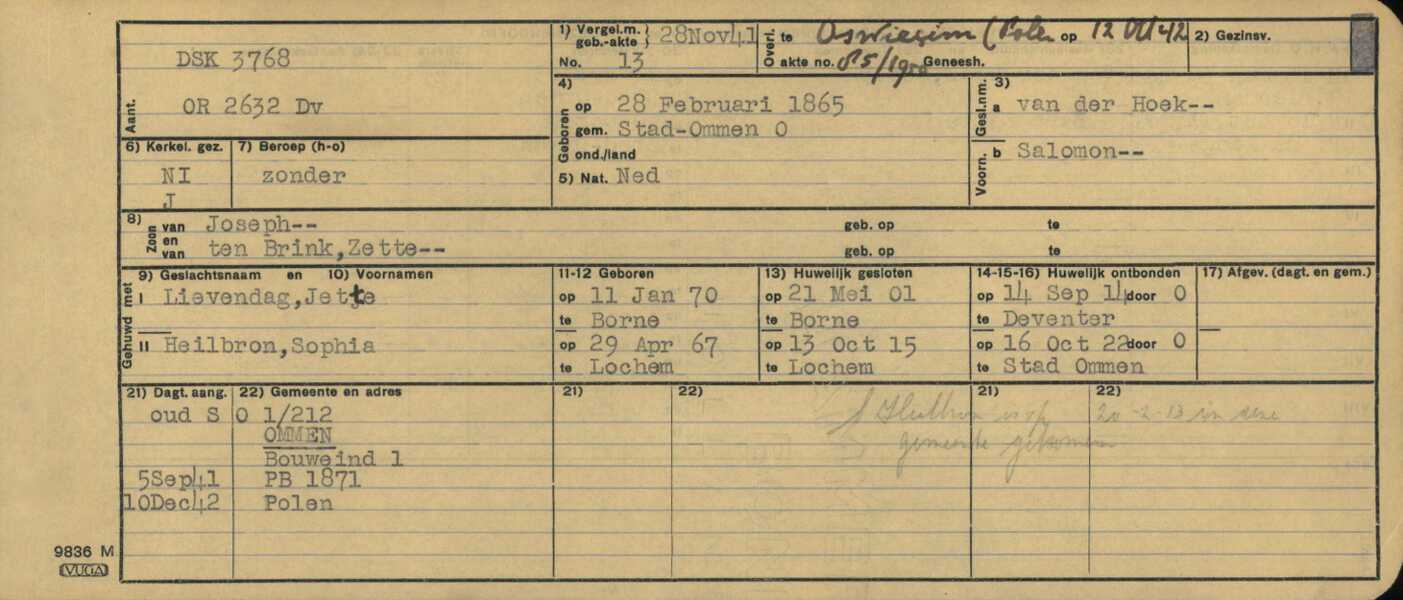 DSK 3768
Aant.
OR 2632 Dv
1) Vergel.m. geb.-akte } 28Nov41
No. 13
Overl. te Oswiecim (Polen op 12 Oct 42
akte no. 85/1950 Geneesh.
2) Gezinsv.
4)
Geboren
op 28 Februari 1865
gem. Stad-Ommen O
ond./land
5) Nat. Ned
3)
Gesl.nm. a van der Hoek--
Voorn. b Salomon--
6) Kerkel. gez.
NI
J
7) Beroep (h-o)
zonder
8) Zoon van en van
Joseph-- geb. op te
ten Brink,Zette-- geb. op te
9) Geslachtsnaam en 10) Voornamen 11-12 Geboren 13) Huwelijk gesloten 14-15-16) Huwelijk ontbonden 17) Afgev. (dagt. en gem.)
Gehuwd met
I Lievendag,Jette op 11 Jan 70 op 21 Mei 01 op 14 Sep 14 door O
te Borne te Borne te Deventer
II Heilbron,Sophia op 29 Apr 67 op 13 Oct 15 op 16 Oct 22 door O
te Lochem te Lochem te Stad Ommen
21) Dagt. aang. 22) Gemeente en adres 21) 22) 21) 22)
oud S O 1/212
OMMEN
Bouweind 1
5Sep41 PB 1871
10Dec42 Polen
20-2-13 in deze
gemeente gekomen
9836 M
VUGA